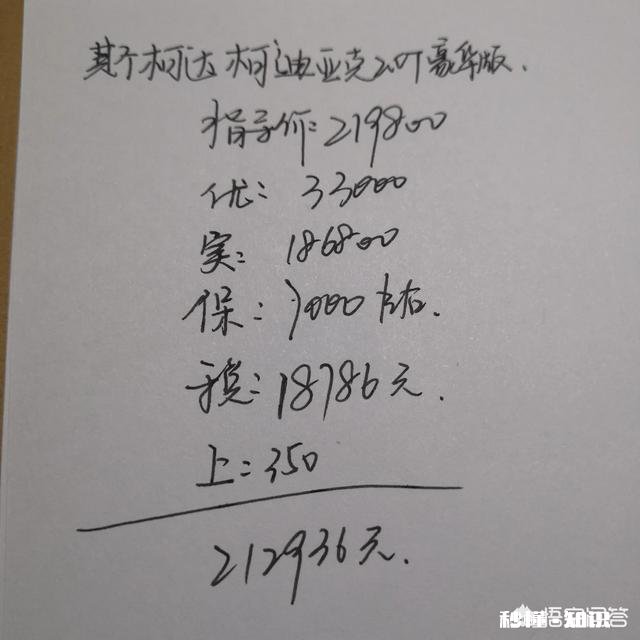 其个柯达柯迪亚克2.0T豪华版.
指导价:219800
优:33000
实:186800
保:7000左右.
税:18786元.
上:350
212936元.
悟空问答
秒懂·知识